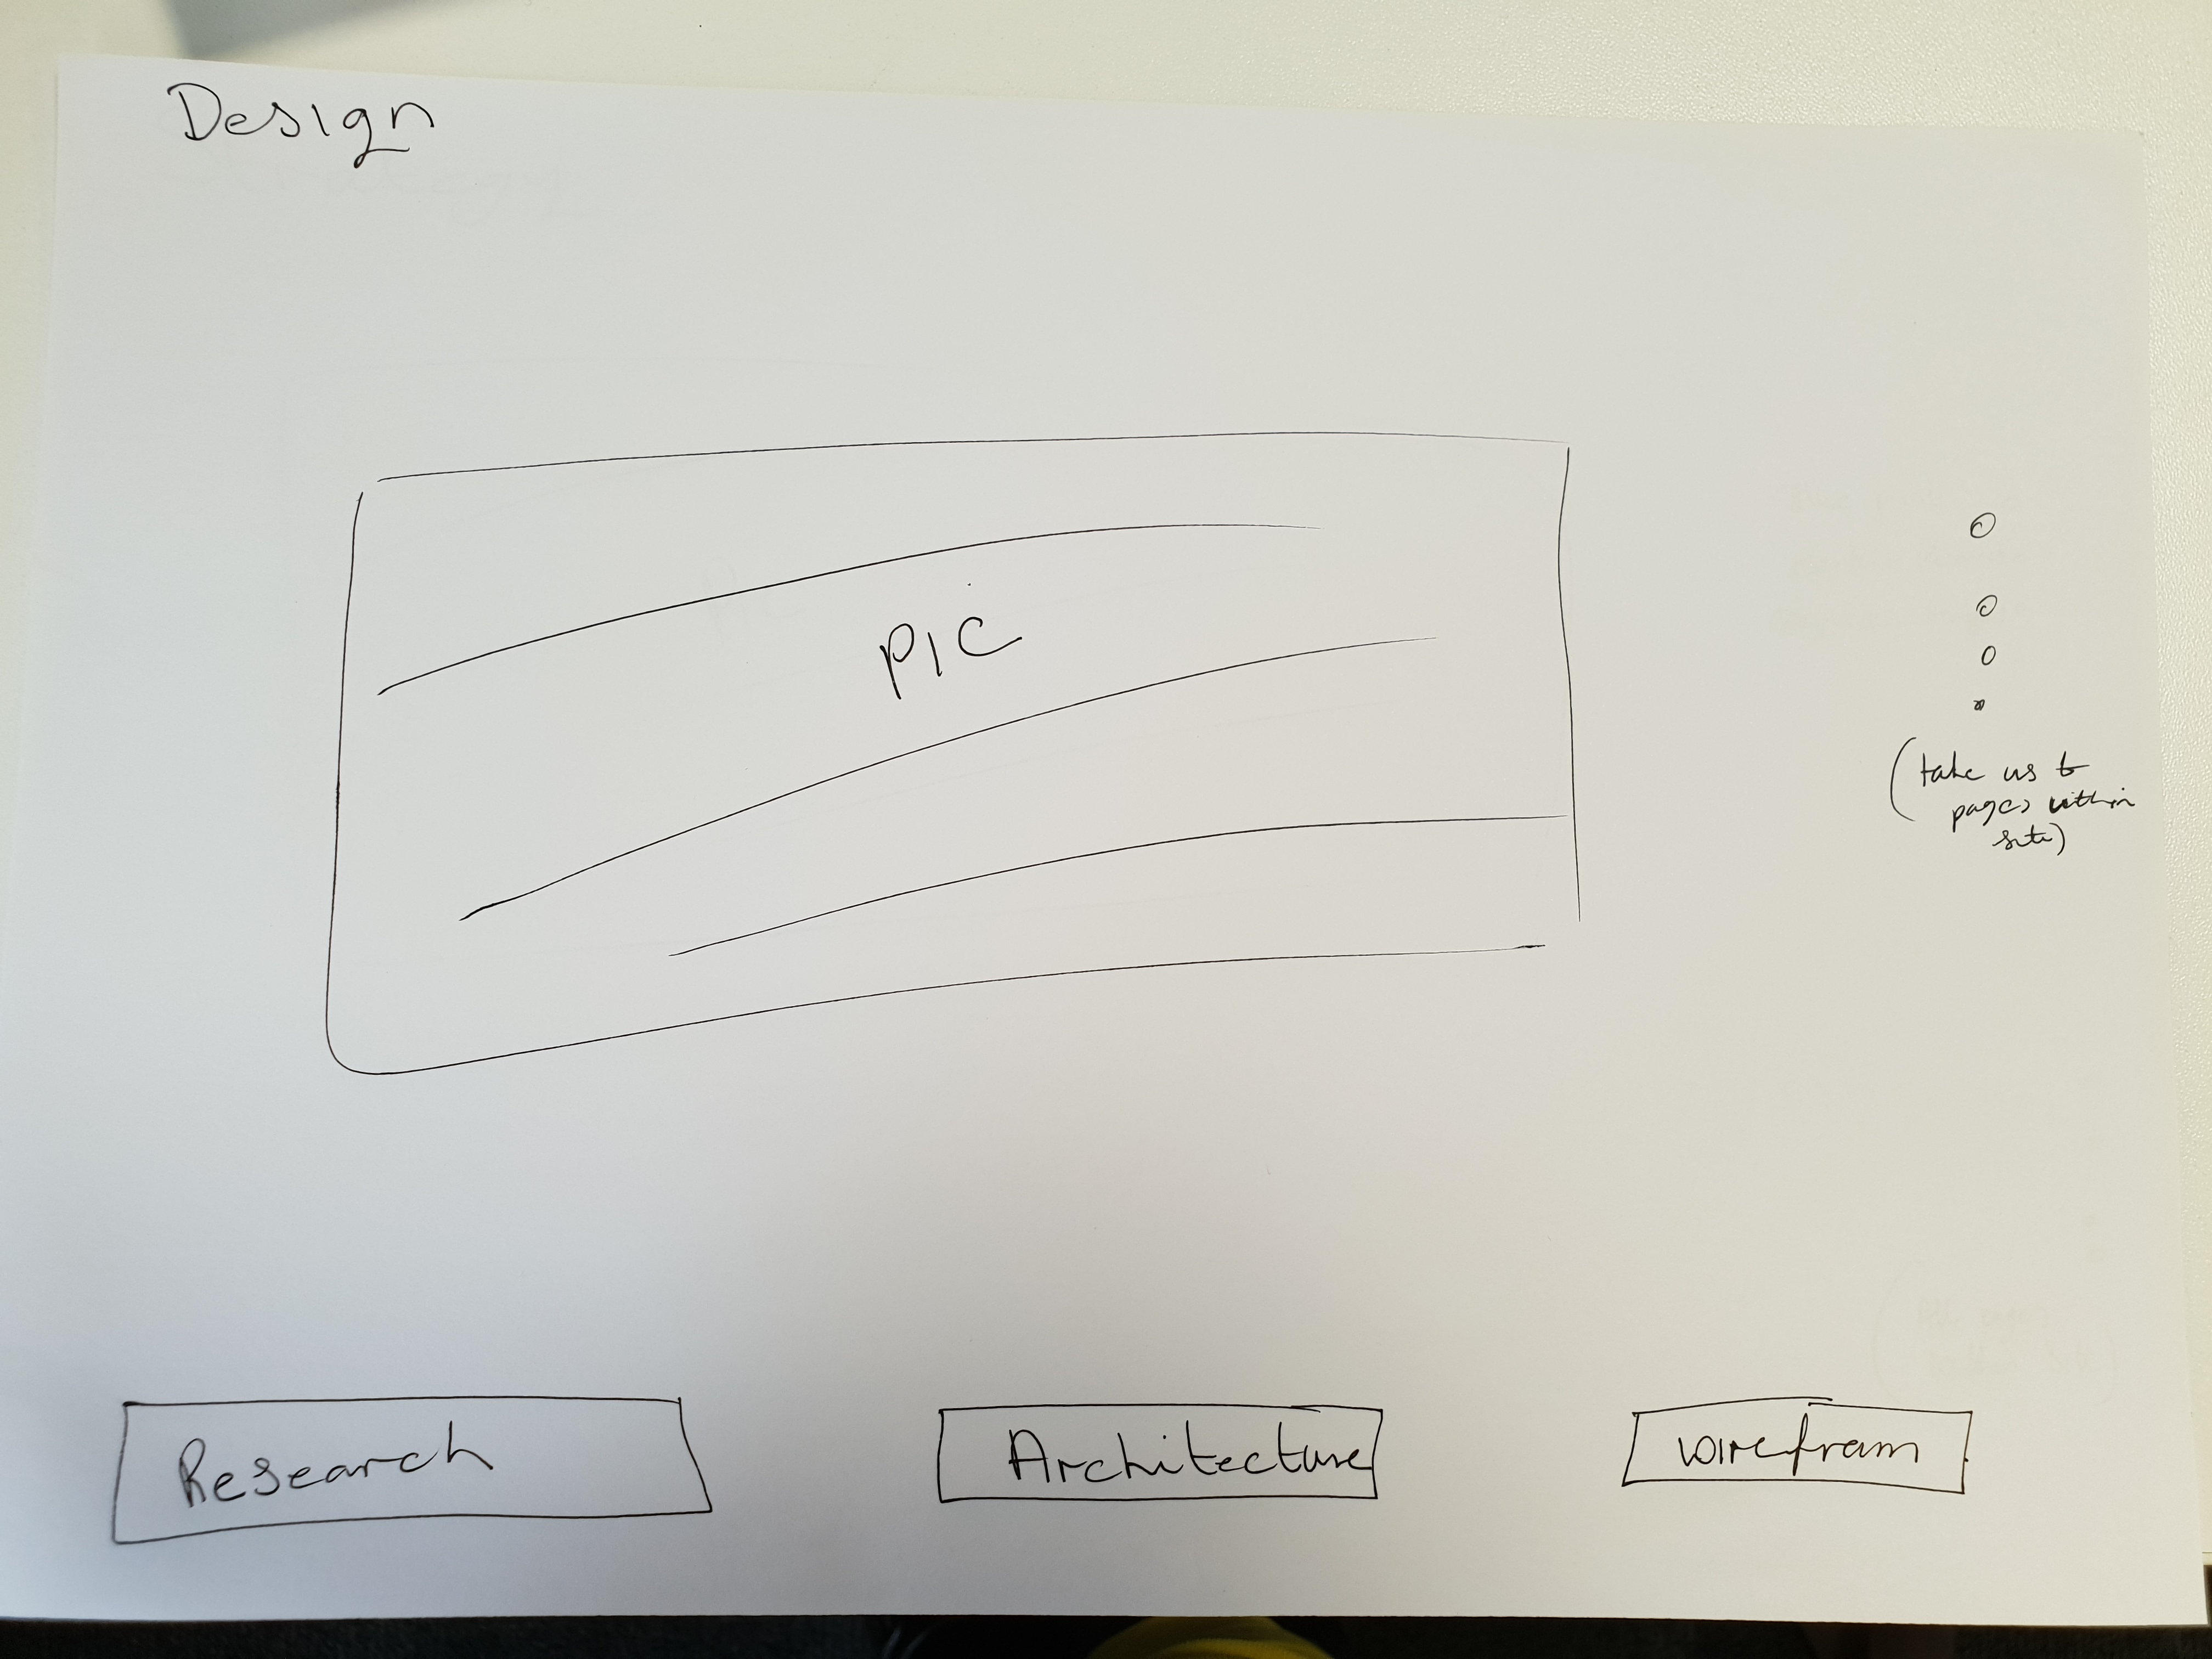 Design
PIC
(take us to
pages within
site)
Research
Architecture
wirefram